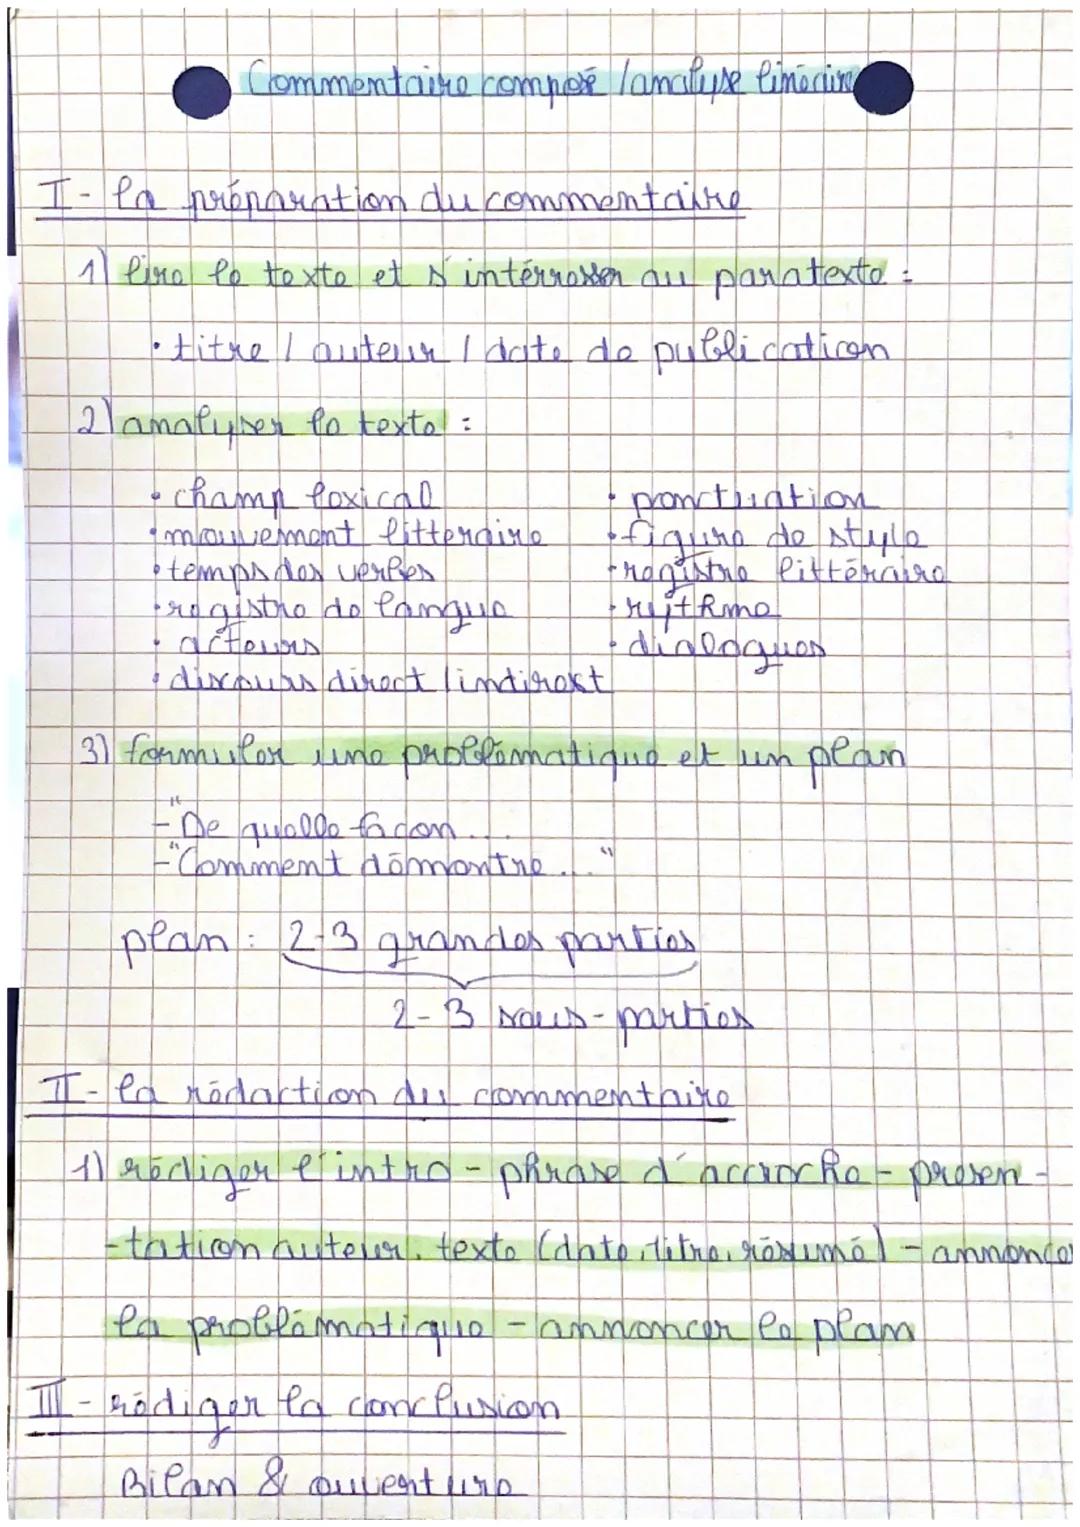 Commentaire composé / analyse linéaire
I - la préparation du commentaire
1) lire le texte et s'intérresser au paratexte :
• titre / auteur / date de publication
2) analyser le texte :
• champ lexical
• mouvement litteraire
• temps des verbes
• registre de langue
• acteurs
• discours direct / indirect
• ponctuation
• figure de style
• registre littéraire
• rythme
• dialogues
3) formuler une problématique et un plan
- "De quelle façon...
- "Comment démontre..."
plan : 2-3 grandes parties
2-3 sous-parties
II - la rédaction du commentaire
1) rédiger l'intro - phrase d'accroche - présen-
-tation auteur, texte (date, titre, résumé) - annoncer
la problématique - annoncer le plan
III - rédiger la conclusion
Bilan & ouverture